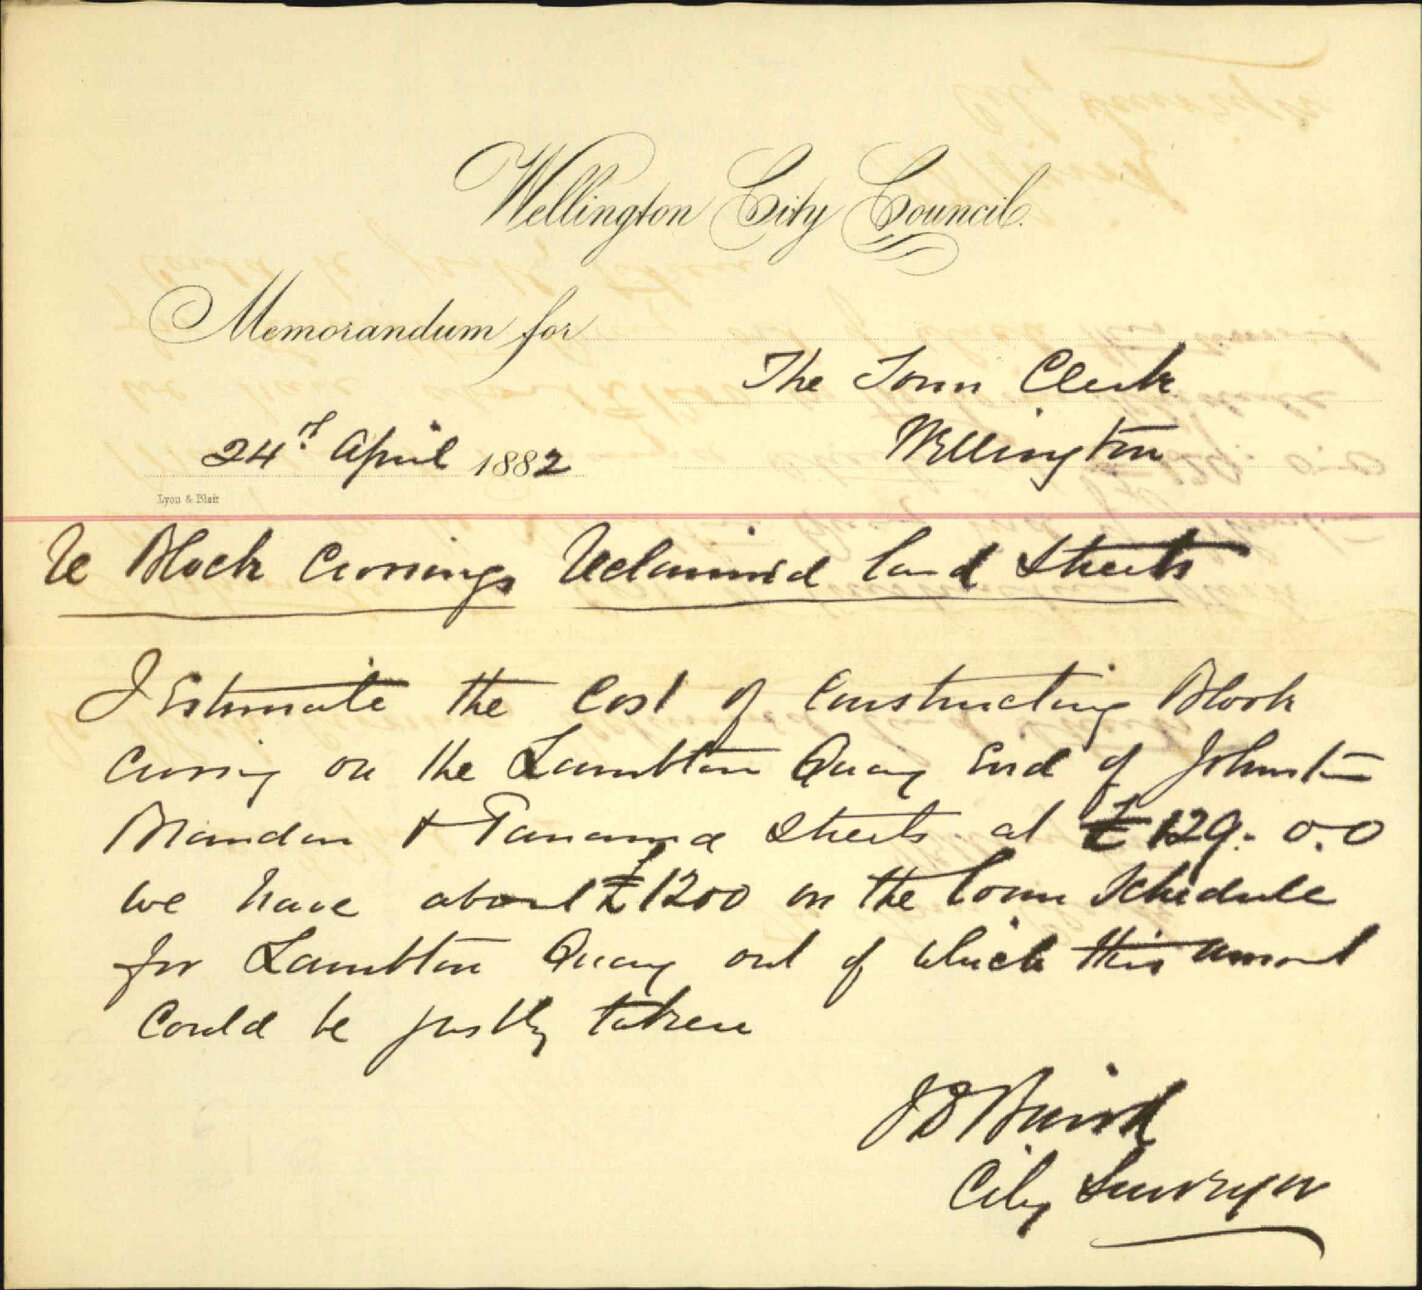 Wellington City Council.
Memorandum for
The Town Clerk
24th April 1882
Wellington
Lyon & Blair
Re Block Crossings Reclaimed land Streets
I Estimate the Cost of Constructing Block
Crossing on the Lambton Quay End of Johnston
Brandon & Panama Streets at £129. 0. 0
we have about £1200 on the loan Schedule
for Lambton Quay out of which this amount
Could be justly taken
J D Baird
City Surveyor